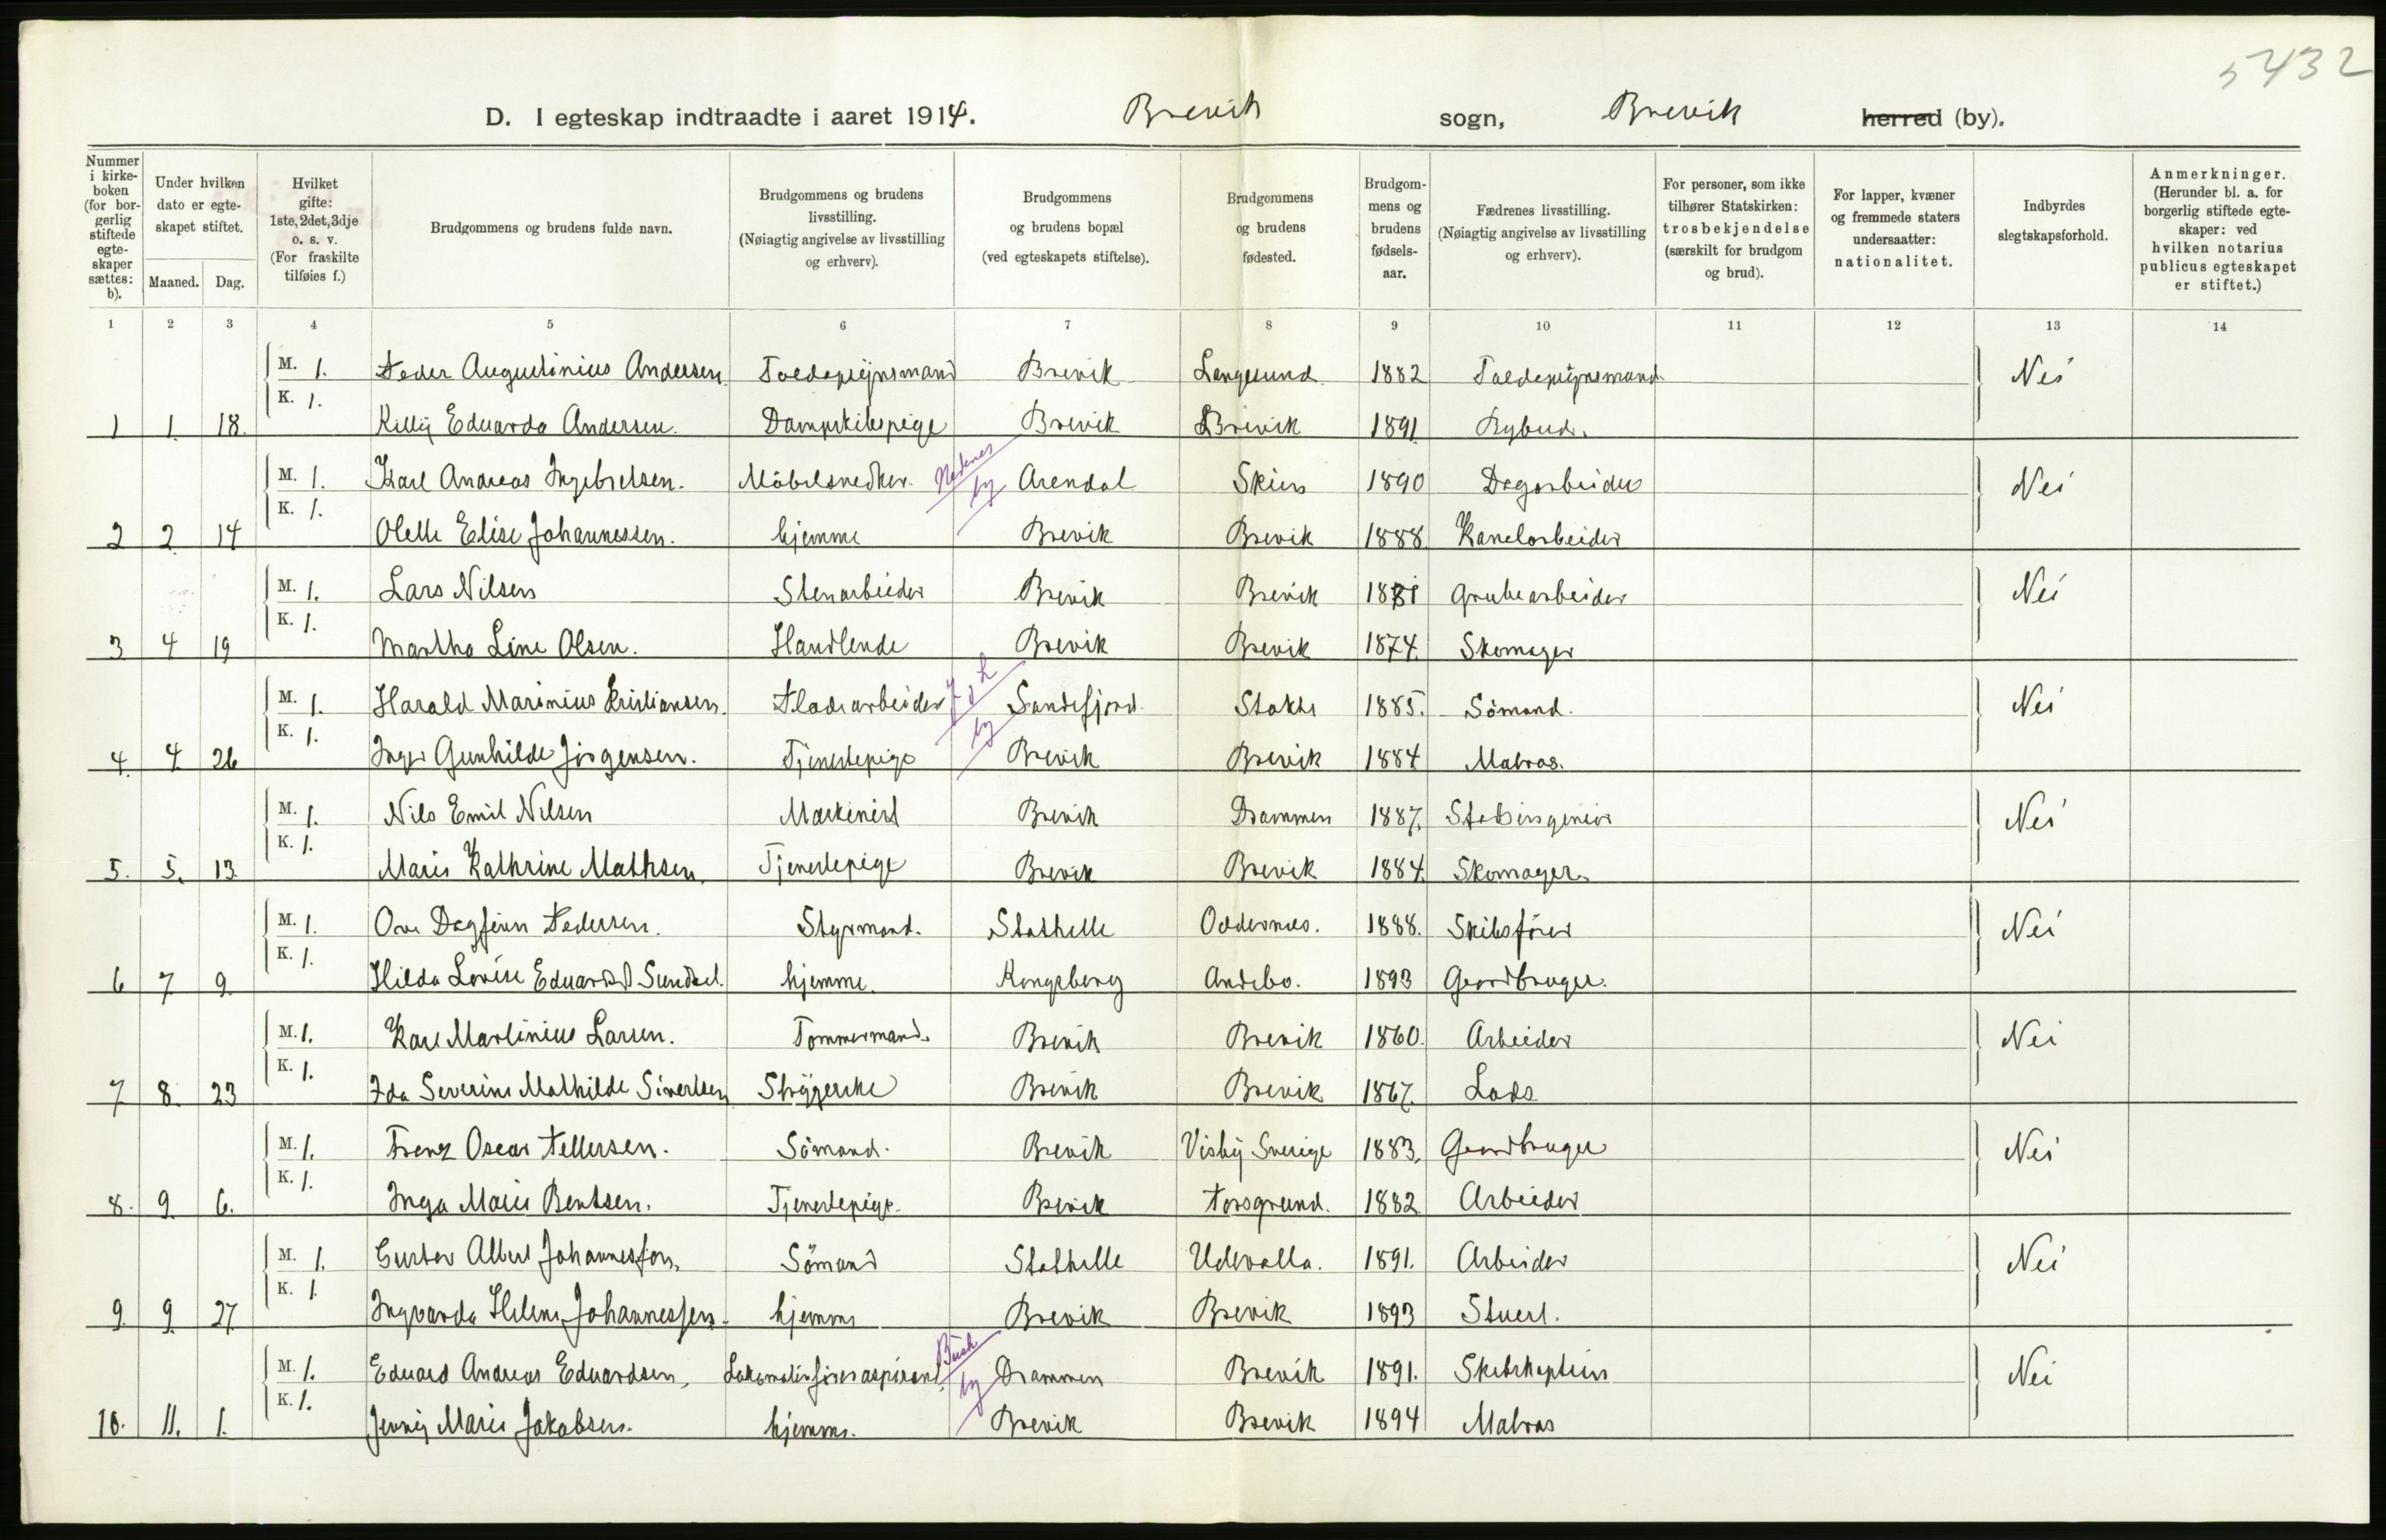 5432
D. I egteskap indtraadte i aaret 1914. Brevik sogn, Brevik herred (by).
Nummer i kirkeboken (for borgerlig stiftede egteskaper sættes: b).
Under hvilken dato er egteskapet stiftet.
Maaned. Dag.
Hvilket gifte: 1ste, 2det, 3dje o. s. v. (For fraskilte tilføies f.)
Brudgommens og brudens fulde navn.
Brudgommens og brudens livsstilling. (Nøiagtig angivelse av livsstilling og erhverv).
Brudgommens og brudens bopæl (ved egteskapets stiftelse).
Brudgommens og brudens fødested.
Brudgommens og brudens fødselsaar.
Fædrenes livsstilling. (Nøiagtig angivelse av livsstilling og erhverv).
For personer, som ikke tilhører Statskirken: trosbekjendelse (særskilt for brudgom og brud).
For lapper, kvæner og fremmede staters undersaatter: nationalitet.
Indbyrdes slegtskapsforhold.
Anmerkninger. (Herunder bl. a. for borgerlig stiftede egteskaper: ved hvilken notarius publicus egteskapet er stiftet.)
1 2 3 4 5 6 7 8 9 10 11 12 13 14
M. 1. Peder Augustinius Andersen Toldopsynsmand Brevik Langesund 1882 Toldopsynsmand Nei
1 1 18. K. 1. Killy Eduarda Andersen. Dampskibspige Brevik Brevik 1891 Bybud.
M. 1. Karl Andreas Ingebretsen. Möbelsnedker. Nedenes by Arendal Skien 1890 Dagarbeider Nei
2 2 14 K. 1. Olette Elise Johannessen. hjemme Brevik Brevik 1888. Kanelarbeider
M. 1. Lars Nilsen Stenarbeider Brevik Brevik Grubearbeider Nei
3 4 19 K. 1. Martha Line Olsen. Handlende Brevik Brevik 1874. Skomager
M. 1. Harald Marinius Kristiansen. Pladsarbeider J & L by Sandefjord. Stokke 1885. Sömand. Nei
4. 4 26 K. 1. Inger Gunhilde Jörgensen. Tjenestepige Brevik Brevik 1884 Matros.
M. 1. Nils Emil Nilsen Maskinist Brevik Drammen 1887. Stadsingeniör Nei
5. 5. 13. K. 1. Marie Kathrine Mathisen. Tjenestepige Brevik Brevik 1884. Skomager.
M. 1. Ove Dagfinn Pedersen. Styrmand. Stathelle Oddernes. 1888. Skibsförer Nei
6 7 9. K. 1. Hilda Lovise Sundset. hjemme. Kongsberg Andebo. 1893 Gaardbruger.
M. 1. Karl Martinius Larsen. Tömmermand. Brevik Brevik 1860. Arbeider Nei
7 8. 23 K. 1. Ida Severine Mathilde Sivertsen Strygerske Brevik Brevik 1867. Lods
M. 1. Frenz Oscar Pettersen. Sömand. Brevik Visby Sverige 1883. Gaardbruger Nei
8. 9. 6. K. 1. Inga Marie Bentsen. Tjenestepige. Brevik Porsgrund. 1882 Arbeider
M. 1. Gustav Albert Johannesson. Sömand Stathelle Udevalla. 1891. Arbeider Nei
9. 9. 27. K. 1. Ingvarda Helene Johannessen. hjemme Brevik Brevik 1893 Stuert.
M. 1. Eduard Andreas Eduardsen, Lokomotivföreraspirant. Busk by Drammen Brevik 1891. Skibskaptein Nei
10. 11. 1. K. 1. Jenny Marie Jakobsen. hjemme. Brevik Brevik 1894 Matros